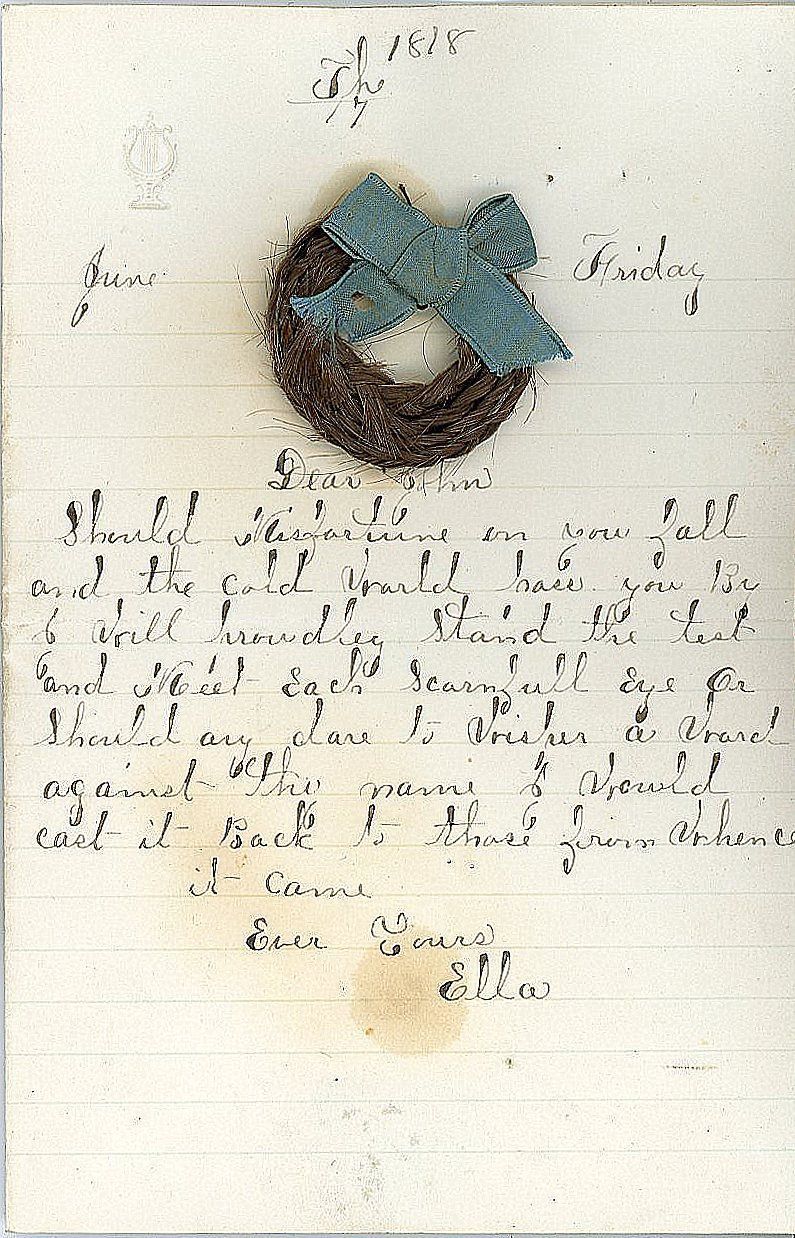 1818
Th
7
June Friday
Dear John
Should Misfortune on you fall
and the cold World pass you By
I Will proudley Stand the test
and Meet Each Scornfull Eye Or
Should any dare to Wisper a Word
against thy name I Would
cast it Back to those from Whence
it Came
Ever Yours
Ella